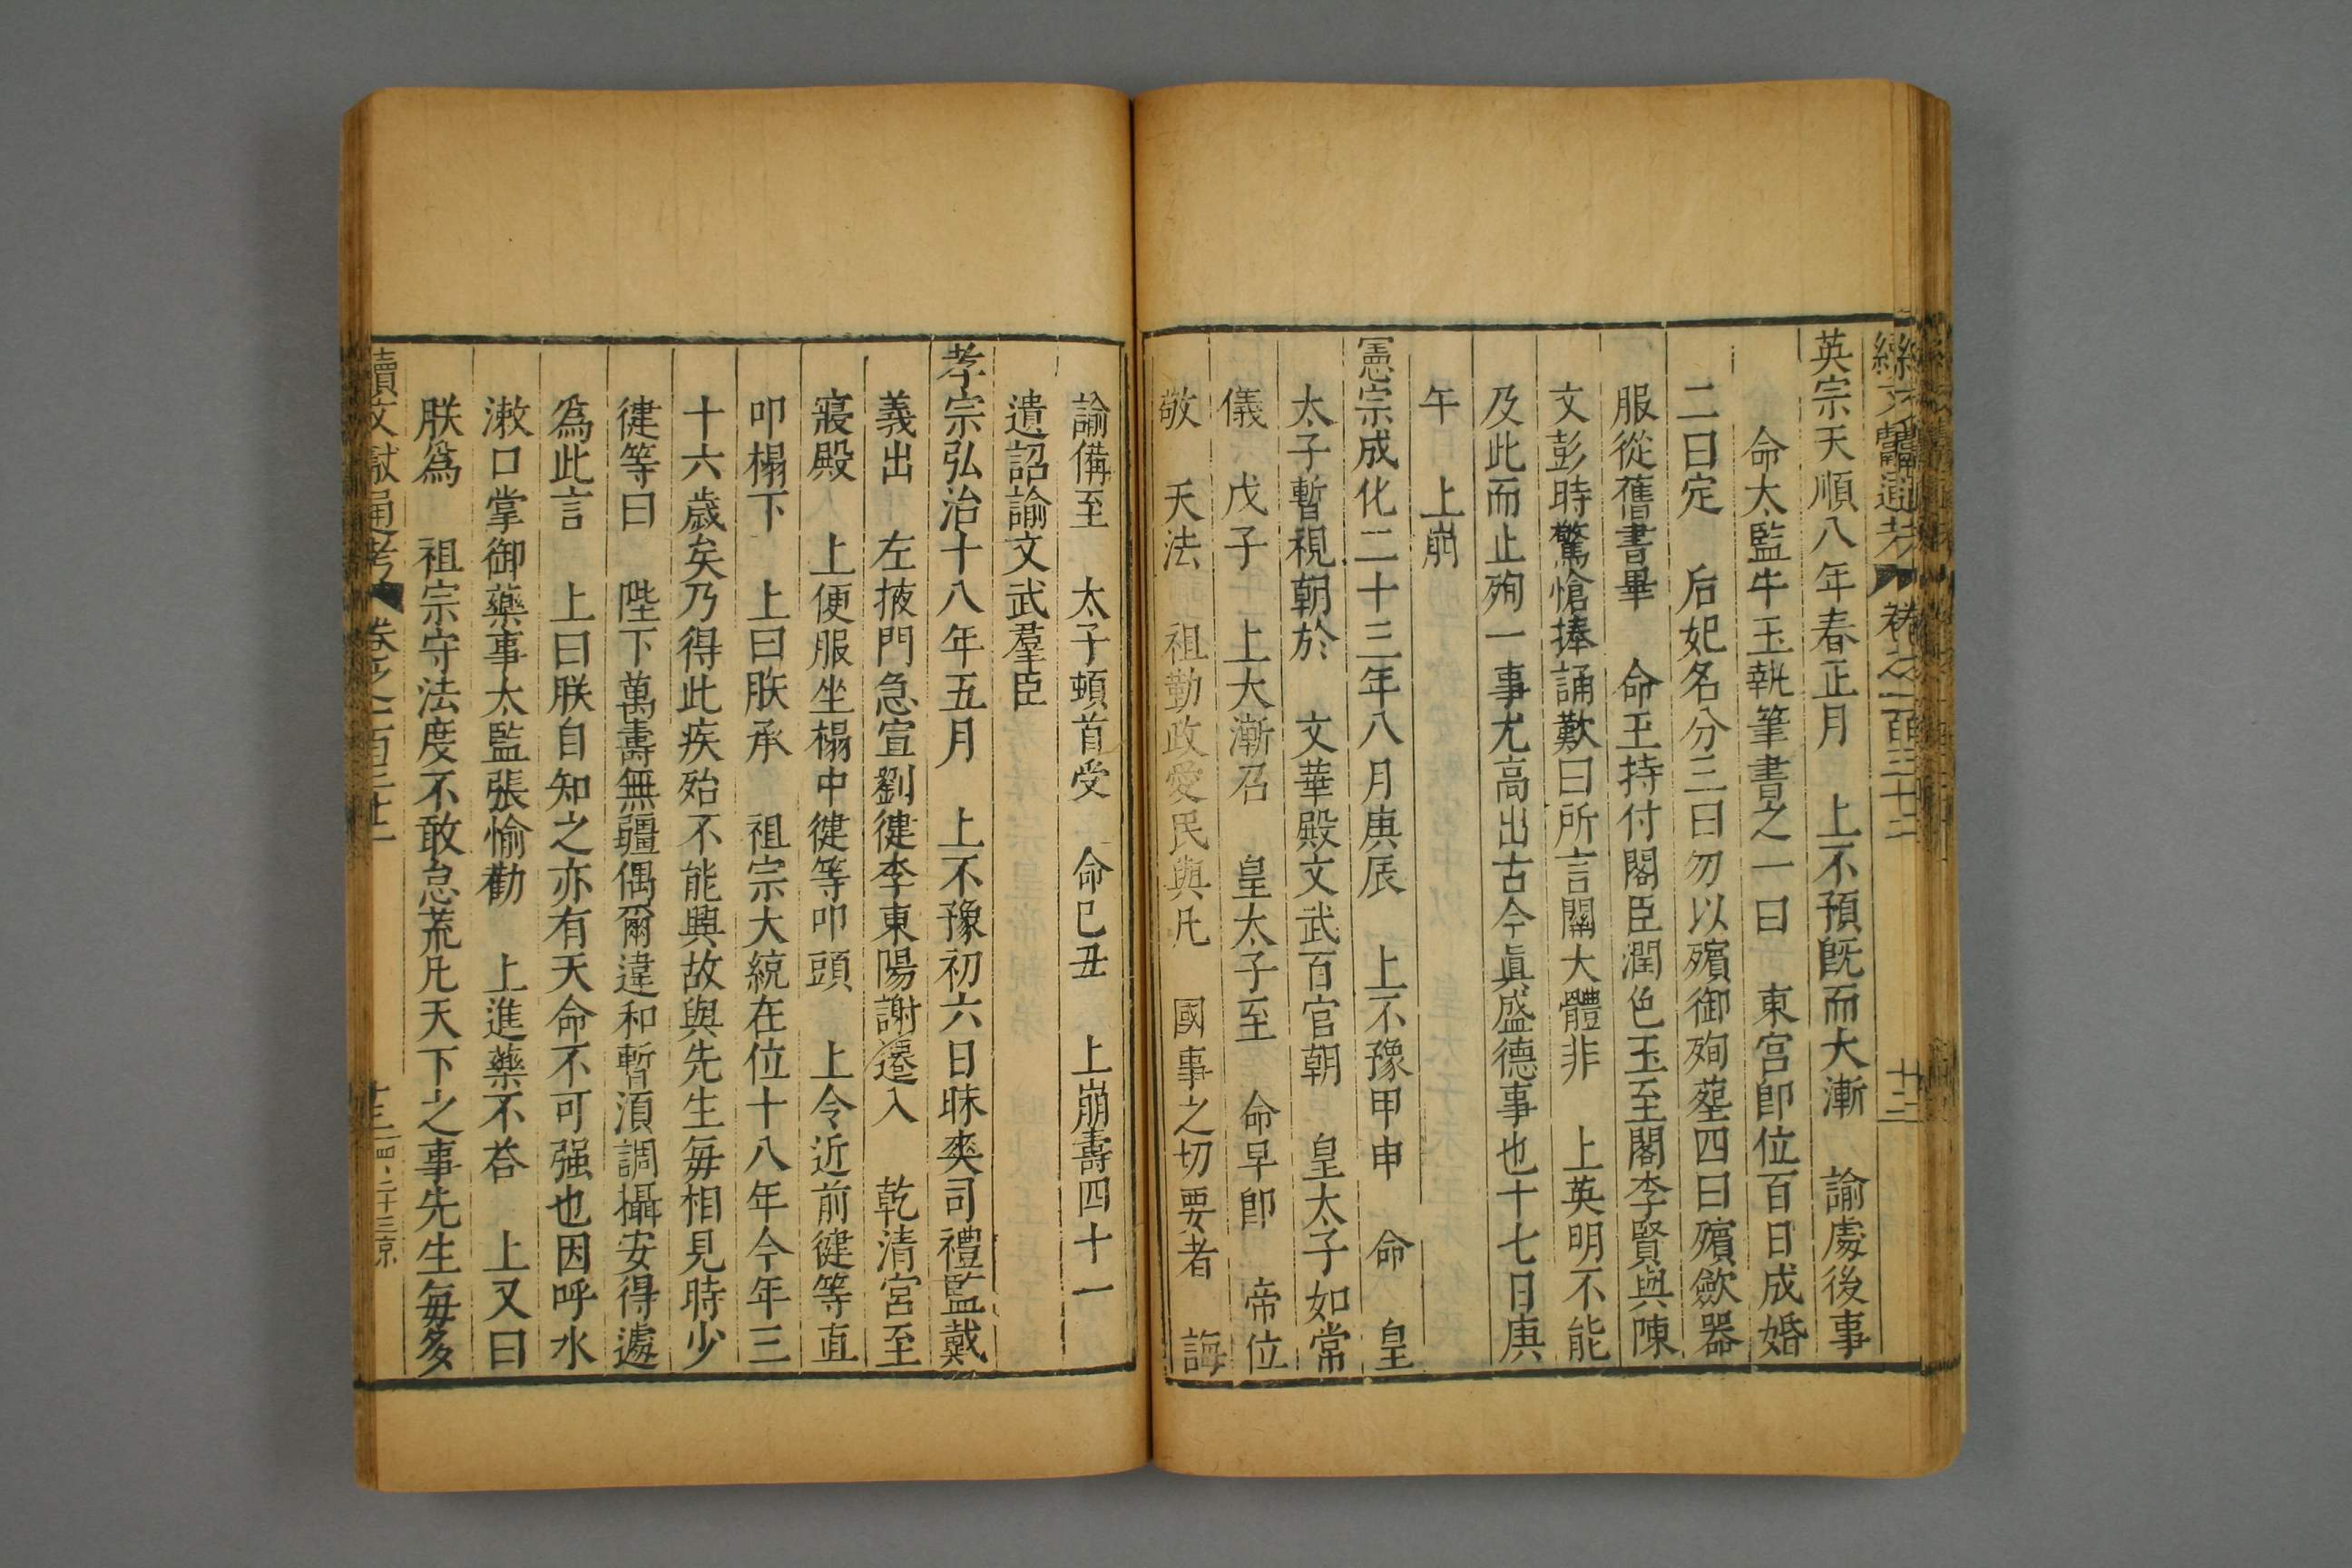 續文獻通考 卷之一百三十二 十三
英宗天順八年春正月 上不預旣而大漸 諭處後事
命太監牛玉執筆書之一曰 東宮卽位百日成婚
二曰定 后妃名分三曰勿以殯御殉塟四曰殯歛器
服從舊書畢 命玉持付閣臣潤色玉至閣李賢與陳
文彭時驚愴捧誦歎曰所言關大體非 上英明不能
及此而止殉一事尤高出古今眞盛德事也十七日庚
午 上崩
憲宗成化二十三年八月庚辰 上不豫甲申 命 皇
太子暫視朝於 文華殿文武百官朝 皇太子如常
儀 戊子 上大漸召 皇太子至 命早卽 帝位
敬 天法 祖勤政愛民與凡 國事之切要者 誨
諭備至 太子頓首受 命己丑 上崩壽四十一
遺詔諭文武羣臣
孝宗弘治十八年五月 上不豫初六日昧爽司禮監戴
義出 左掖門急宣劉健李東陽謝遷入 乾清宮至
寢殿 上便服坐榻中健等叩頭 上令近前健等直
叩榻下 上曰朕承 祖宗大統在位十八年今年三
十六歲矣乃得此疾殆不能興故與先生每相見時少
健等曰 陛下萬壽無疆偶爾違和暫須調攝安得遽
爲此言 上曰朕自知之亦有天命不可强也因呼水
漱口掌御藥事太監張愉勸 上進藥不荅 上又曰
朕爲 祖宗守法度不敢怠荒凡天下之事先生每多
續文獻通考 卷之一百三十二 十三